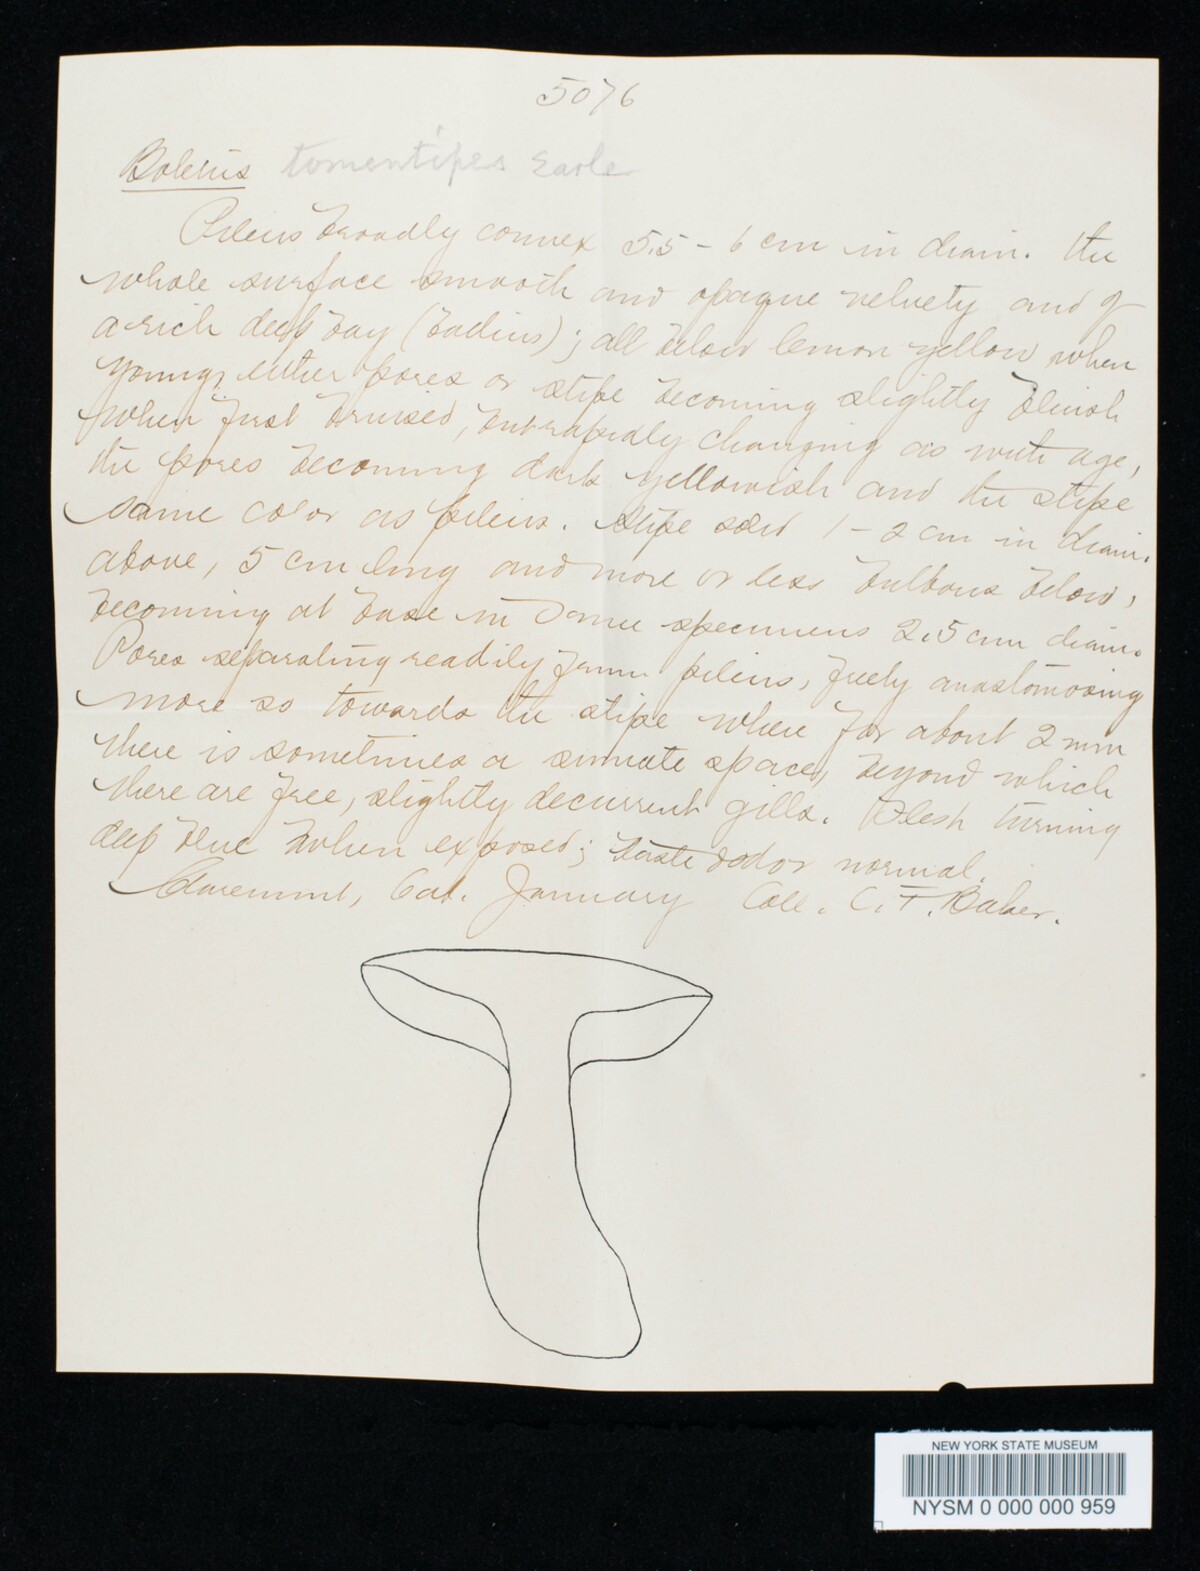 5076
Boletus tomentipes Earle
Pileus broadly convex 5.5 - 6 cm in diam. the
whole surface smooth and opaque velvety and of
a rich deep bay (badius); all below lemon yellow when
young, either pores or stipe becoming slightly bluish
when first bruised, but rapidly changing as with age,
the pores becoming dark yellowish and the stipe
same color as pileus. Stipe solid 1 - 2 cm in diam.
above, 5 cm long and more or less bulbous below,
becoming at base in some specimens 2.5 cm diam.
Pores separating readily from pileus, freely anastomosing
more so towards the stipe where for about 2 mm
there is sometimes a sinuate space, beyond which
there are free, slightly decurrent gills. Flesh turning
deep blue when exposed; taste & odor normal.
Claremont, Cal. January Coll. C. F. Baker.
NEW YORK STATE MUSEUM
NYSM 0 000 000 959